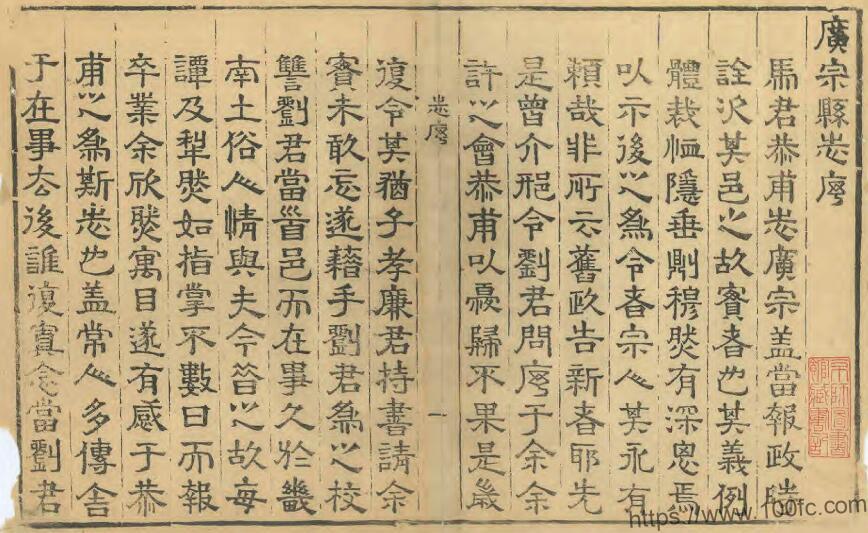 廣宗縣志序
馬君恭甫志廣宗盖當報政時
詮次其邑之故實者也其義例
體裁恤隱垂則穆然有深思焉
以示後之爲令者宗之其永有
頼哉非所云舊政告新者耶先
是曾介邢令劉君問序于余余
許之會恭甫以憂歸不果是歲
志序 一
復令其猶子孝廉君持書請余
實未敢忘遂藉手劉君爲之校
讐劉君當首邑而在事久於畿
南土俗人情與夫今昔之故每
譚及犁然如指掌不數日而報
卒業余欣然寓目遂有感于恭
甫之爲斯志也盖常人多傳舍
于在事去後誰復寘念當劉君
京師圖書
館藏書記
https://www.100fc.com